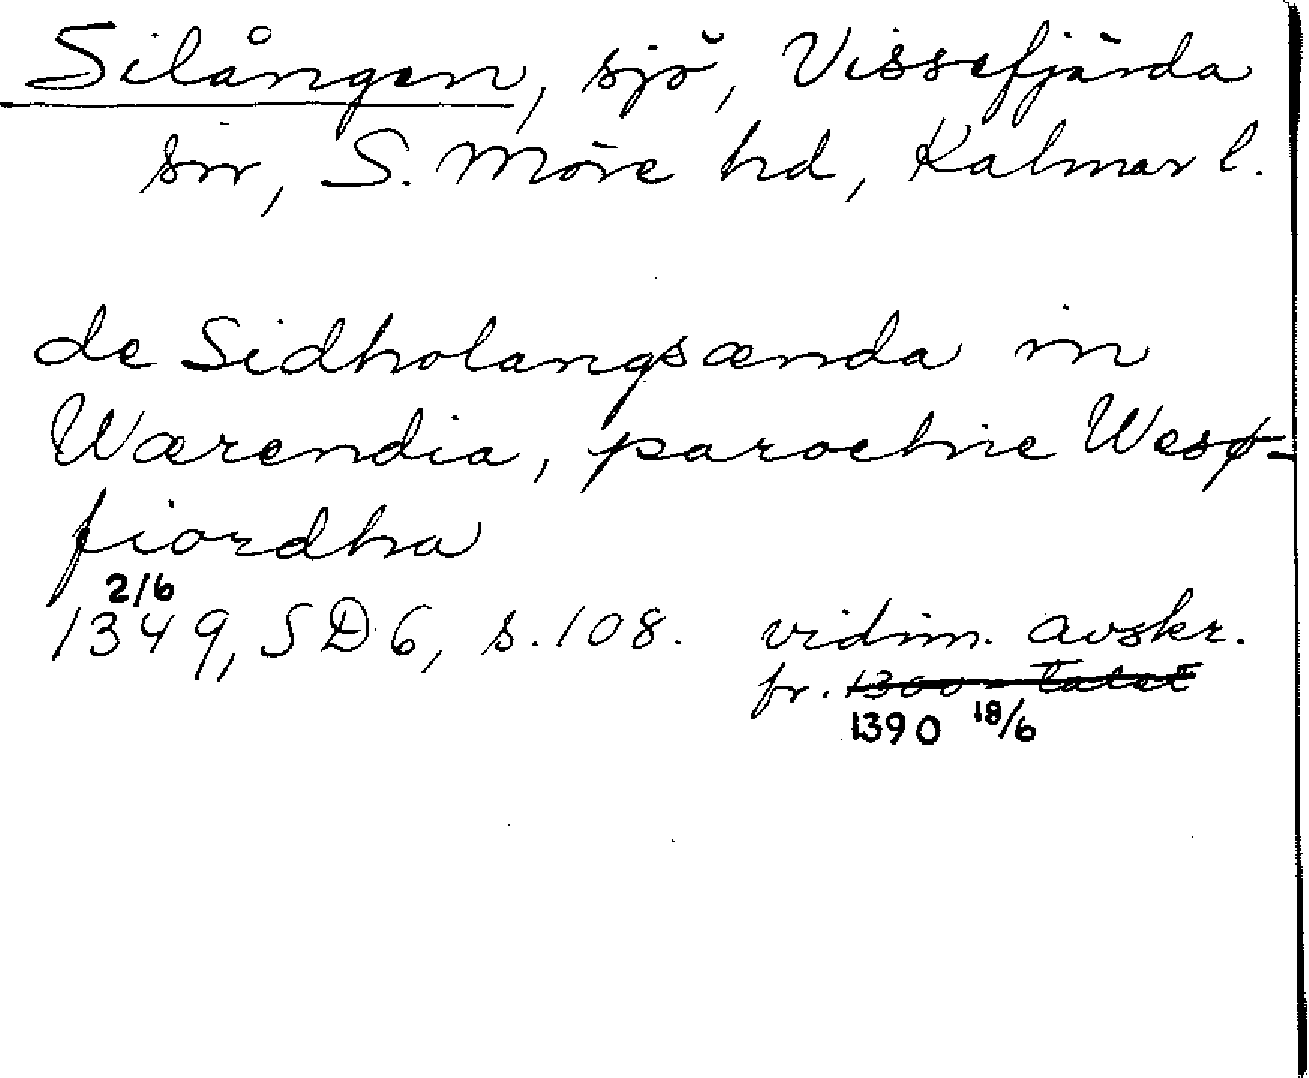 Silången, sjö, Vissefjärda
sn, S. Möre hd, Kalmar l.
de Sidholangsænda in
Wærendia, parochie Wesø-
fiordha
2/6
1349, SD 6, s. 108. vidim. avskr.
fr. 1300-talet
1390 18/6